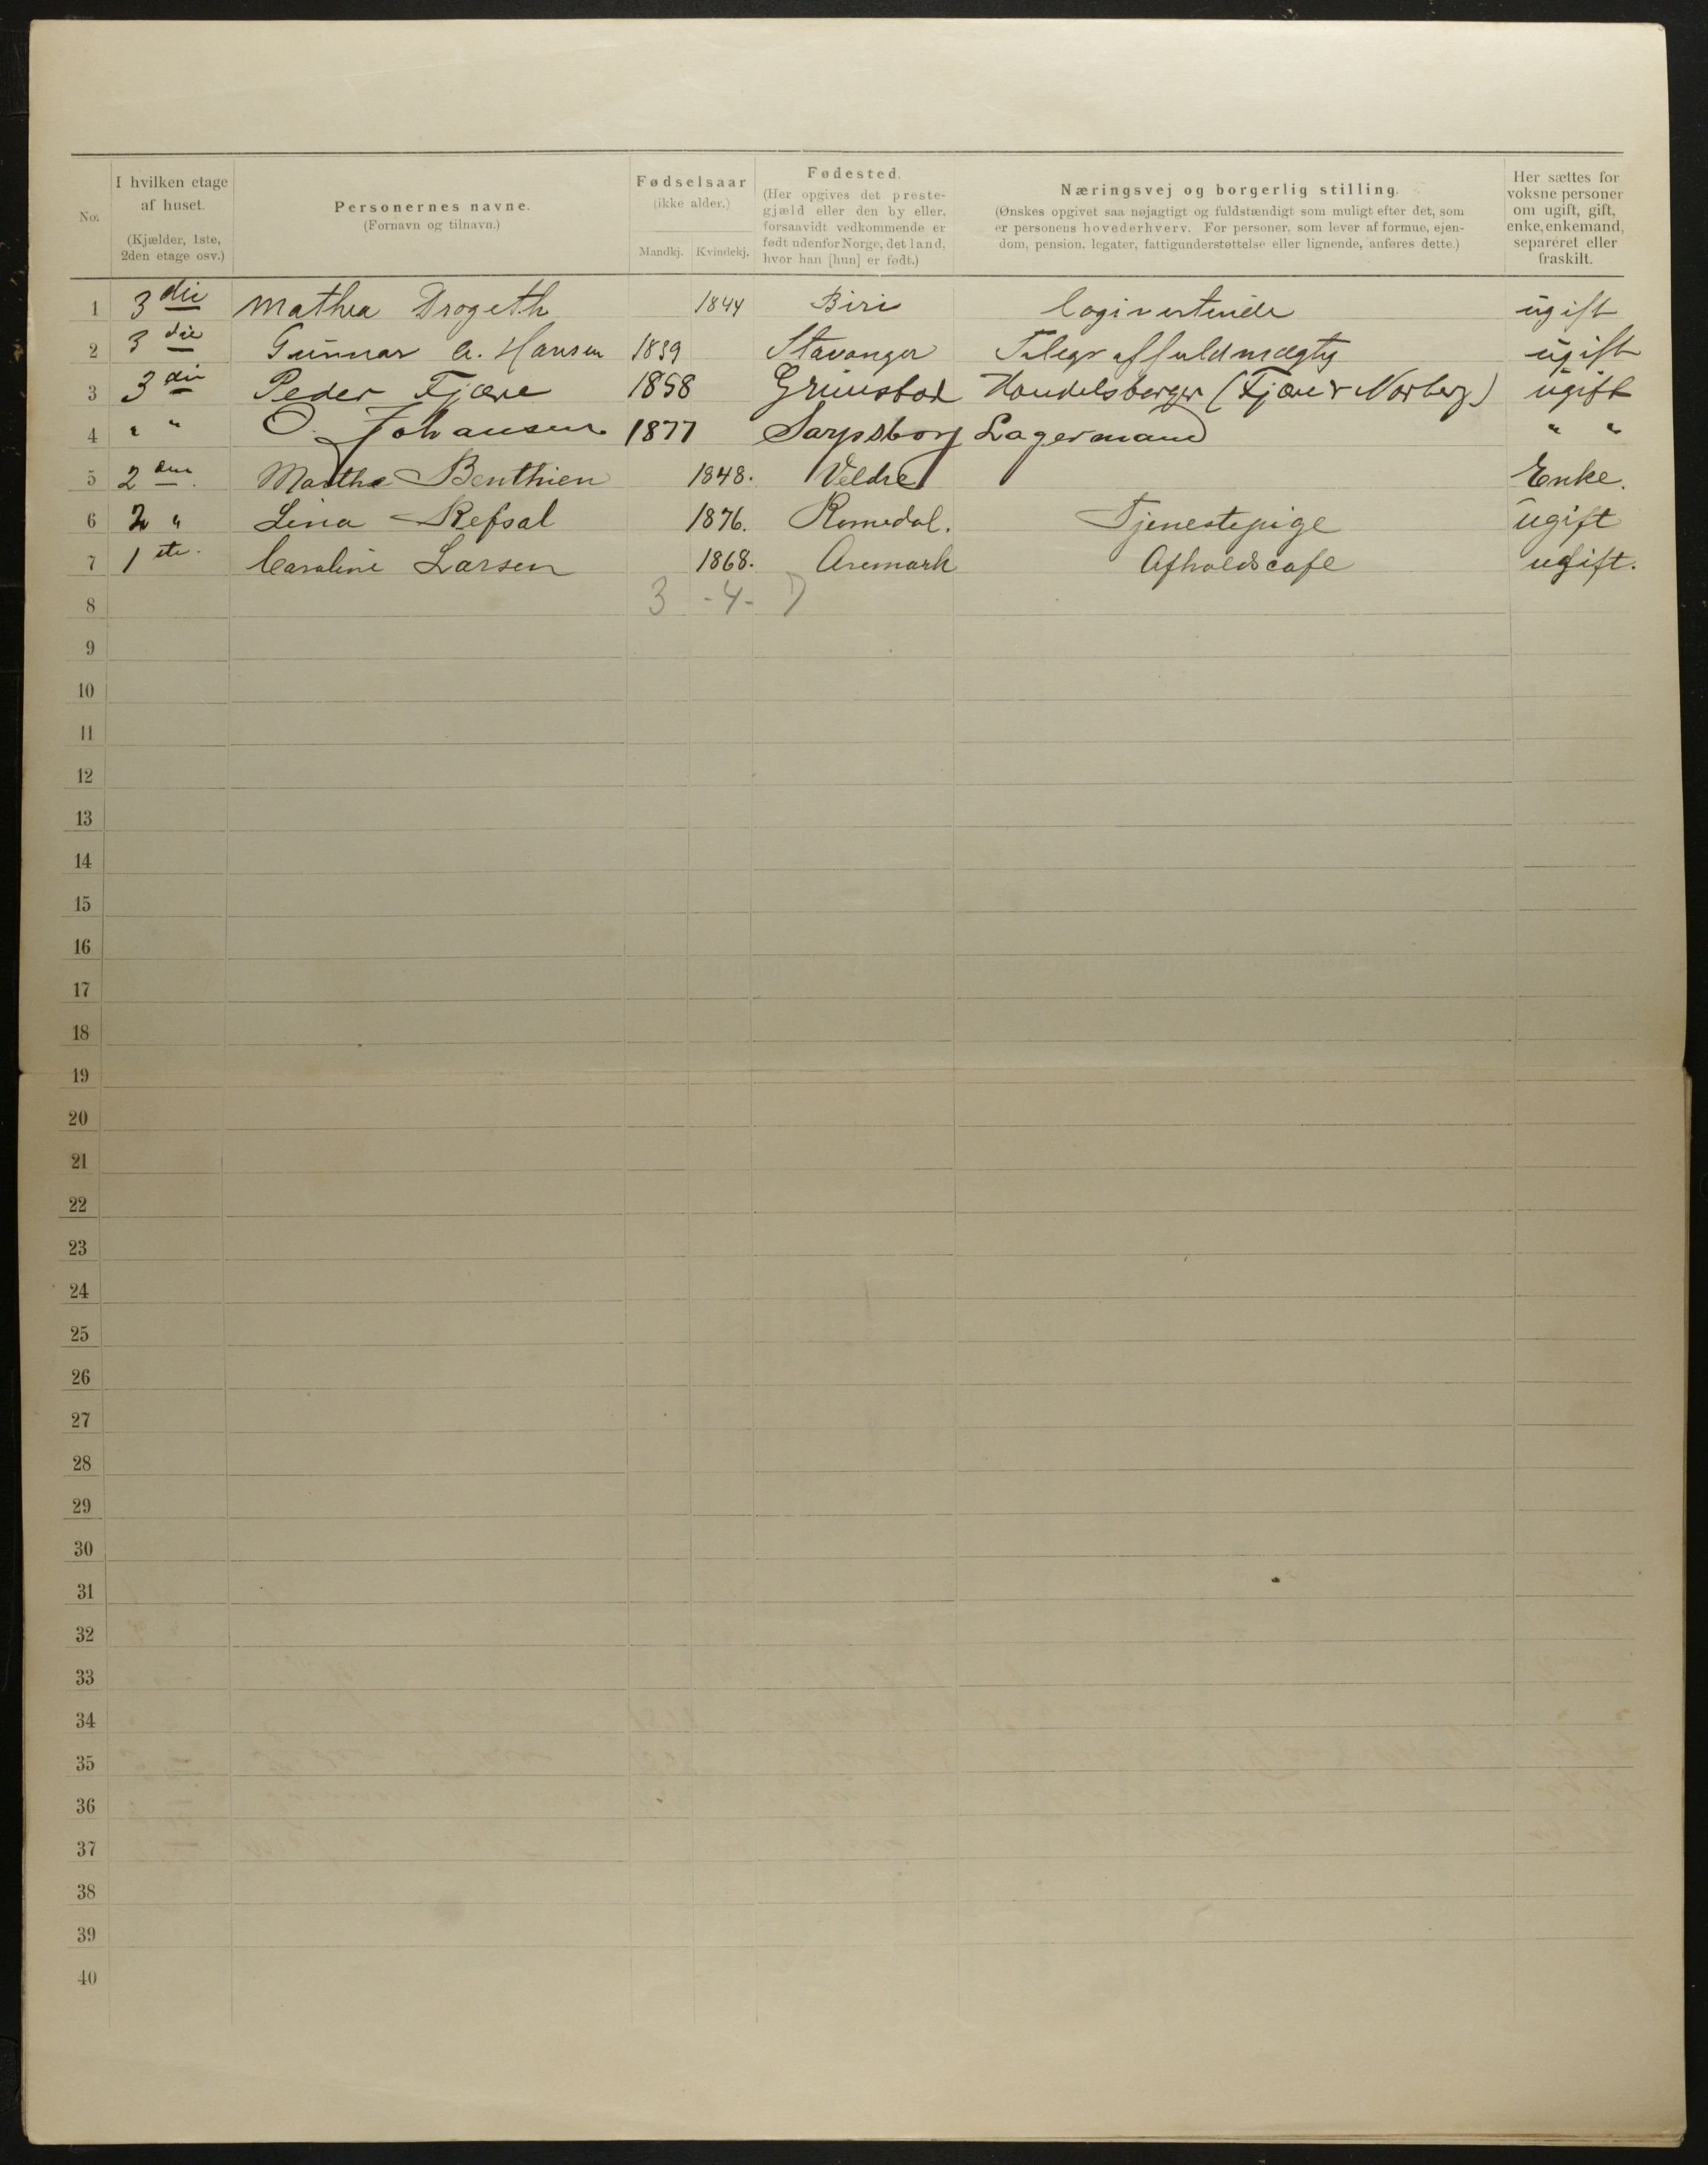 No.
I hvilken etage
af huset.
(Kjælder, 1ste,
2den etage osv.)
Personernes navne.
(Fornavn og tilnavn.)
Fødselsaar
(ikke alder.)
Mandkj. Kvindekj.
Fødested.
(Her opgives det preste-
gjæld eller den by eller,
forsaavidt vedkommende er
født udenfor Norge, det land,
hvor han [hun] er født.)
Næringsvej og borgerlig stilling.
(Ønskes opgivet saa nøjagtigt og fuldstændigt som muligt efter det, som
er personens hovederhverv. For personer, som lever af formue, ejen-
dom, pension, legater, fattigunderstøttelse eller lignende, anføres dette.)
Her sættes for
voksne personer
om ugift, gift,
enke, enkemand,
separeret eller
fraskilt.
1 3die Mathea Drogeth 1844 Biri Logivertinde ugift
2 3die Gunnar A. Hansen 1839 Stavanger Telegraffuldmægtig ugift
3 3die Peder Fjære 1858 Grimstad Handelsborger (Fjære & Norberg) ugift
4 " " O. Johansen 1877 Sarpsborg Lagermand " "
5 2den. Marthe Benthien 1848. Veldre Enke.
6 2 " Lina Refsal 1876. Romedal. Tjenestepige ugift
7 1ste. Caroline Larsen 1868. Aremark Afholdscafe ugift.
8 3 - 4 - 7
9
10
11
12
13
14
15
16
17
18
19
20
21
22
23
24
25
26
27
28
29
30
31
32
33
34
35
36
37
38
39
40